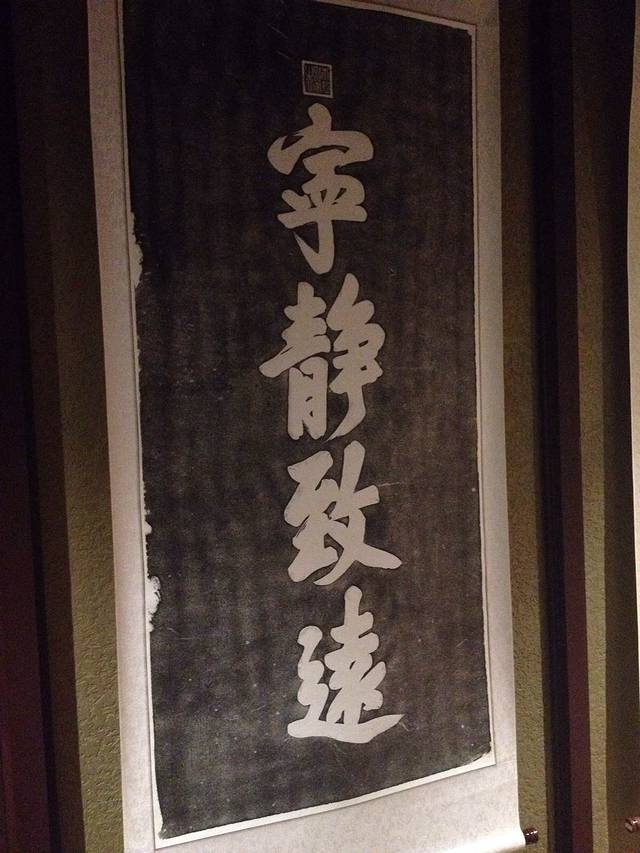 寧静致遠